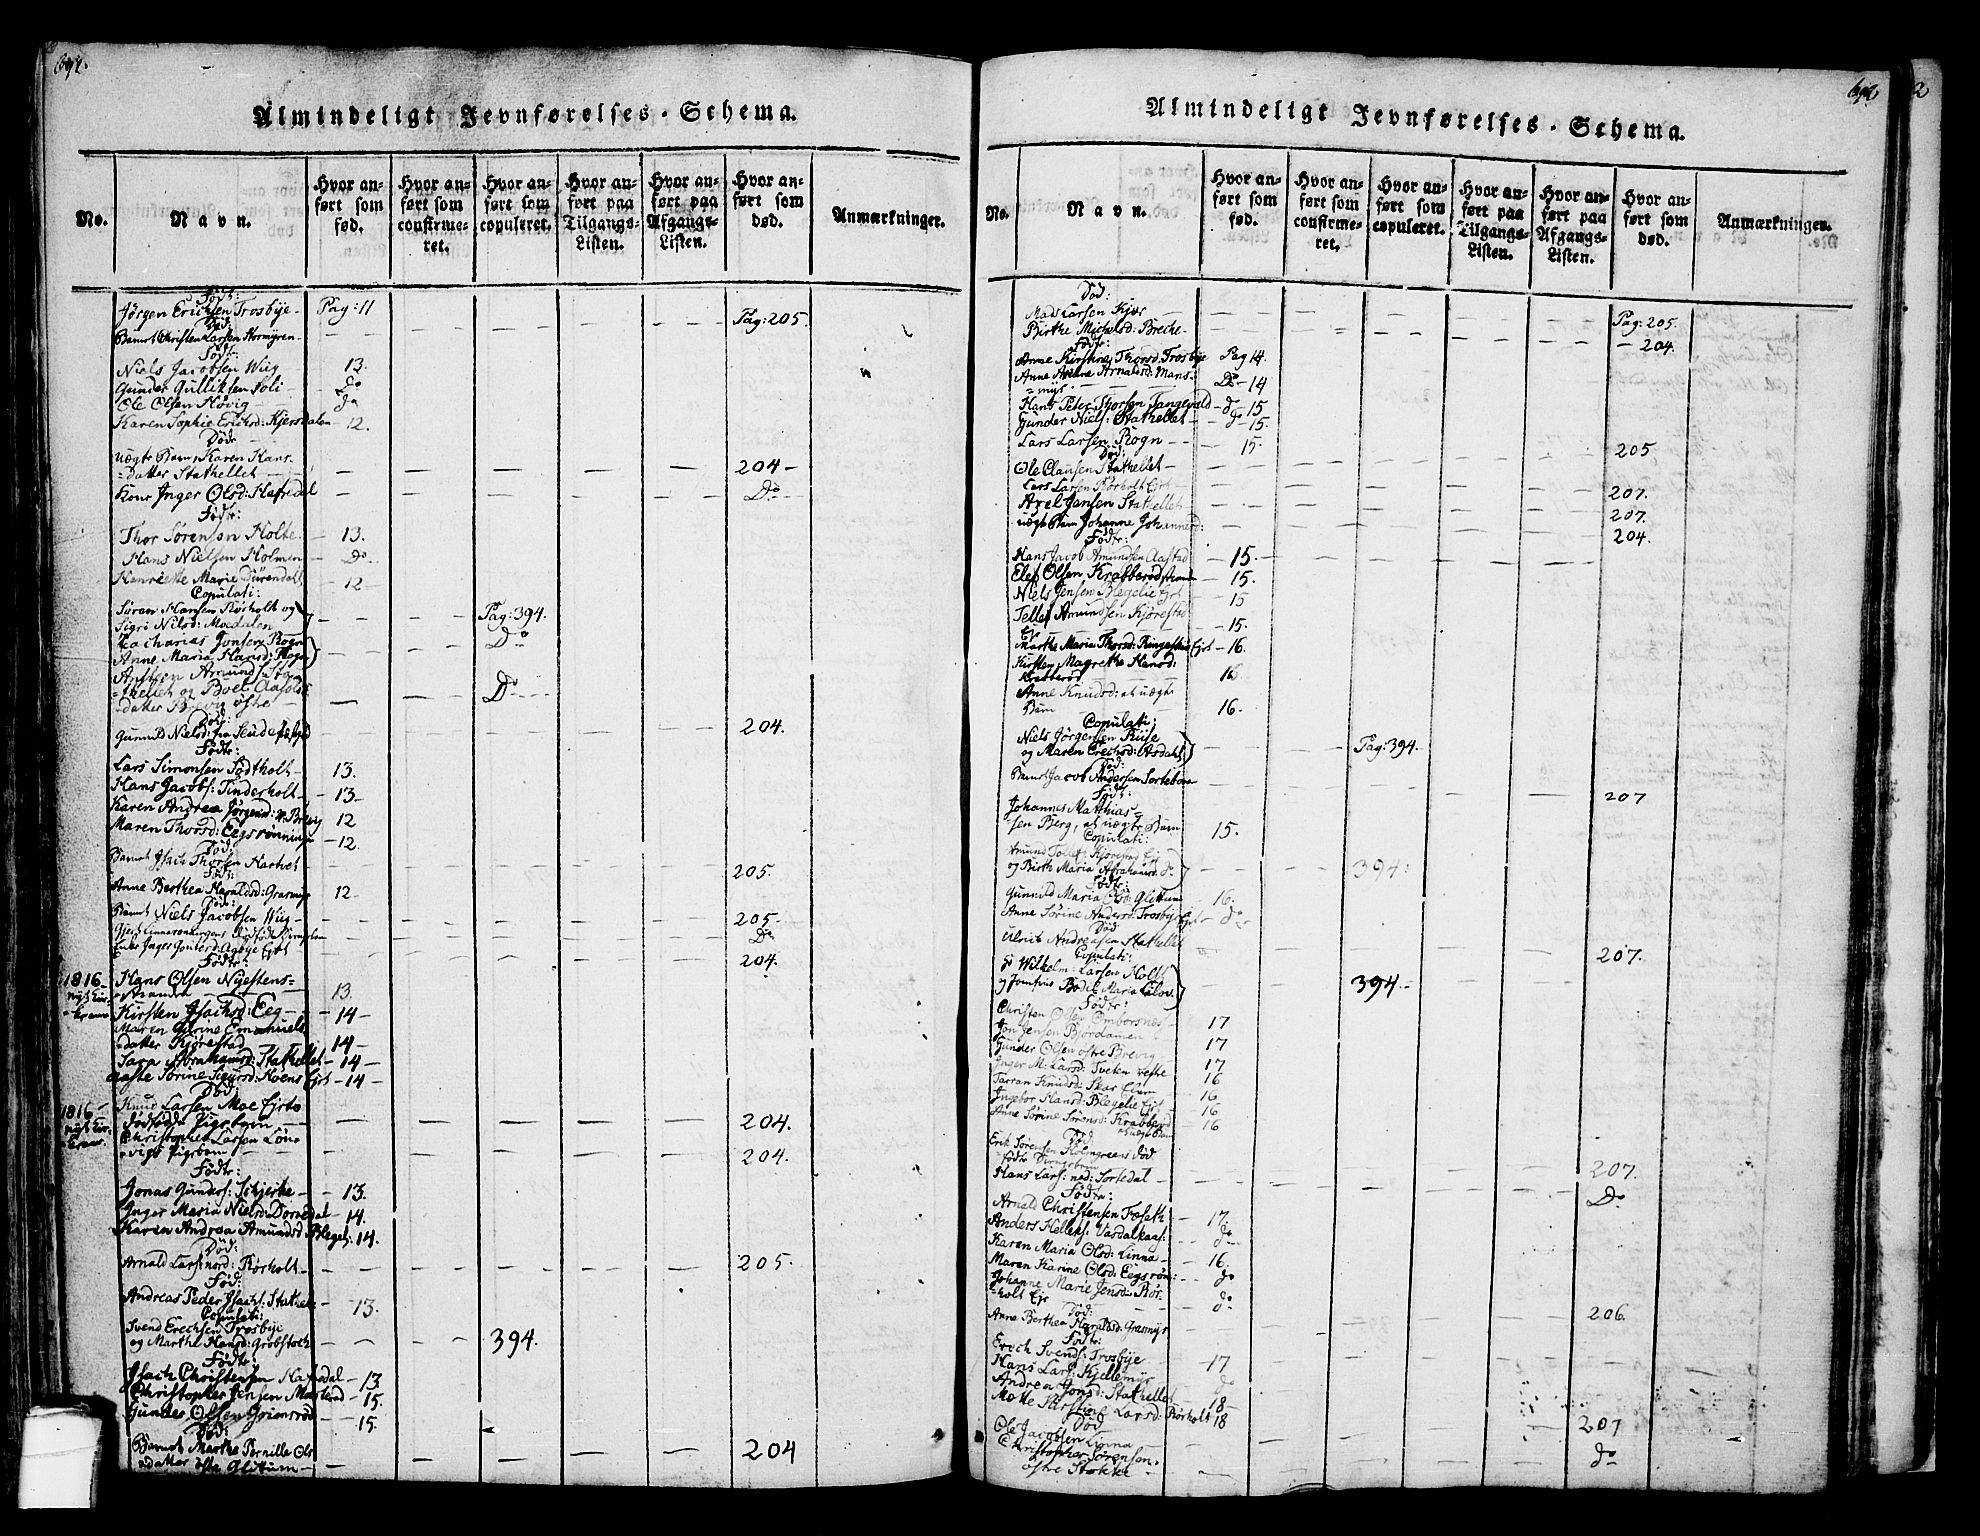 691.
Almindeligt Jevnførelses-Schema.
No.
Navn.
Hvor anført som fød.
Hvor anført som confirmeret.
Hvor anført som copuleret.
Hvor anført paa Tilgangs-Listen.
Hvor anført paa Afgangs-Listen.
Hvor anført som død.
Anmærkninger.
Født:
Jørgen Erichsen Trosbye Pag: 11
Død
Barnet Christen Larsen Stormyren Pag: 205.
Født:
Niels Jacobsen Wiig 13.
Gunder Gulliksen Soli do
Ole Olsen Høvig do
Karen Sophie Erichsd: Kjersdalen 12.
Døde
uægte Barn, Karen Hans-
Datter Stathellet 204
Kone Inger Olsd: Hafredal Do
Født:
Thor Sørensen Holte 13.
Hans Nielsen Holmen Do
Henriette Marie Dürendahl 12
Copulati:
Søren Hansen Rørholt og
Sigri Nilsd: Moedalen Pag: 394.
Zacharias Jonsen Rogn Do
Anne Maria Hansd: Rogn
Amund: Sta-
thellet og Boel
datter Brevig østre D
Død:
Gunild Nielsd: 204.
Født:
Lars Simonsen Södtholt 13.
Hans Jacobs: Tinderholt 13
Karen Andrea Jørgensd: v. Brevig 12
Maren Thorsd: Eegsrønningen 12.
Død:
Barnet Isach Thorsen Hartvet 205.
Født:
Anne Berthea Haraldsd: Grasmyr 12
Død:
Barnet Niels Jacobsen Wiig 205
Do
Enke Inger Aabye Ejrt 204.
Født:
1816 Hans Olsen Nyestens-
Aranden 13
Kirsten Isachsd: Eeg 14
Maren Gurine Emanuels
datter Kjørestad 14
Sara Abrahamsd: Stathellet 14
Aaste Sørine Sigursd: Hoens Ejrt 14
Død:
1816 Knud Larsen Moe Ejrts
dødfødde Pigebarn 204.
Christopher Larsen Løn-
vigs Pigebarn 204.
Født:
Jonas Gunders: Schjerke 13.
Inger Maria Nielsd: Dorredal 14.
Karen Andrea Amundsd: Blegel: 14.
Død:
Arnold Lars: nord: Rørholt 205.
Fød:
Andreas Peder Isachs: Stathel: 13.
Copulati:
Svend Erechsen Trosbye
og Marthe Hansd: Grobstock 394.
Født:
Isach Christensen Hafsdal 13
Christopher Jensen Mosterød 15.
Gunder Olsen Grimsrød 15.
Død:
Barnet Marthe Pernille Ols-
datter østre Glittum 204
692
2
Almindeligt Jevnførelses-Schema.
No.
Navn.
Hvor anført som fød.
Hvor anført som confirmeret.
Hvor anført som copuleret.
Hvor anført paa Tilgangs-Listen.
Hvor anført paa Afgangs-Listen.
Hvor anført som død.
Anmærkninger.
Død:
Mads Larsen Kjær Pag: 205.
Birthe Michelsd: Breche 204.
Født:
Anne Kirstine Thorsd: Trosbye Pag 14.
Anne Arnoldsd: Mans:
myr. Do 14
Hans Peter Thorsen Tangevald do 15
Gunder Niels: Stathellet do 15.
Lars Larsen Rogn 15.
Død:
Ole Clausen Stathellet 205
Lars Larsen Rørholt Ejrt 207.
Axel Jansen Stathellet 207.
uægte Barn Johanne Johannesd: 204.
Født:
Hans Jacob Amundsen Aafstad 15.
Elef Olsen Krabberødstrand 15.
Niels Jensen Blegelie Ejrt 15
Tellef Amundsen Kjørestad
Ejr 15.
Marthe Maria Thorsd: Ringestad Ejrt 16.
Kirsten Magrethe Hansd:
Krabberød 16
Anne Knudsd: et uægte
Barn 16.
Copulati:
Niels Jørgensen Riise
og Maren Erechsd: Aasdahl Pag: 394.
Død:
Barnet Jacob Andersen Sortebom 207
Født:
Johannes Matthias-
sen Berg, et uægte Barn 15.
Copulati:
Amund Tollefs: Kjørestad Ejr
og Birthe Maria Abrahamsd: do 394:
Født:
Gunnild Maria Olsd: Glittum 16.
Anne Sørine Andersd: Trosbye Ejrt do
Død
Ulrich Andreasen Stathellet 207.
Copulati:
Wilhelm Larsen Holst
og Jomfrue Bodil Maria 394
Født:
Christen Olsen Omborsnes 17
Jon Jensen Bjordamen 17
Gunder Olsen østre Brevig 17
Inger M: Larsd: Tveten vestre 16
Tarran Knudsd: Skar Even 16
Ingebor Hansd: Blegelie Ejrt 16
Anne Sørine Sørensd: Krabberød 16
et uægte Barn
Død
Erik Sørensen Holmgreens død-
fødte Drengebarn 207
Hans Lars: ned: Sortedal Do
Født:
Arnold Christensen Foseth 17.
Anders Kelleks: Vardalkaas: do
Karen Maria Olsd: Linna 16.
Maren Karine Olsd: Eegsrøn: do
Johanne Marie Jensd: Rør-
holt Ejr do
Død:
Anne Berthea Haraldsd: Grasmyr 206.
Født:
Erech Svends: Trosbye 17
Hans Lars: Kjellemyr do
Andrea Jonsd: Stathellet 18
Mette Kirstine Larsd: Rørholt 18
Død
Ole Jacobsen Linna 207
Christopher Sørensen
østre Stokke do